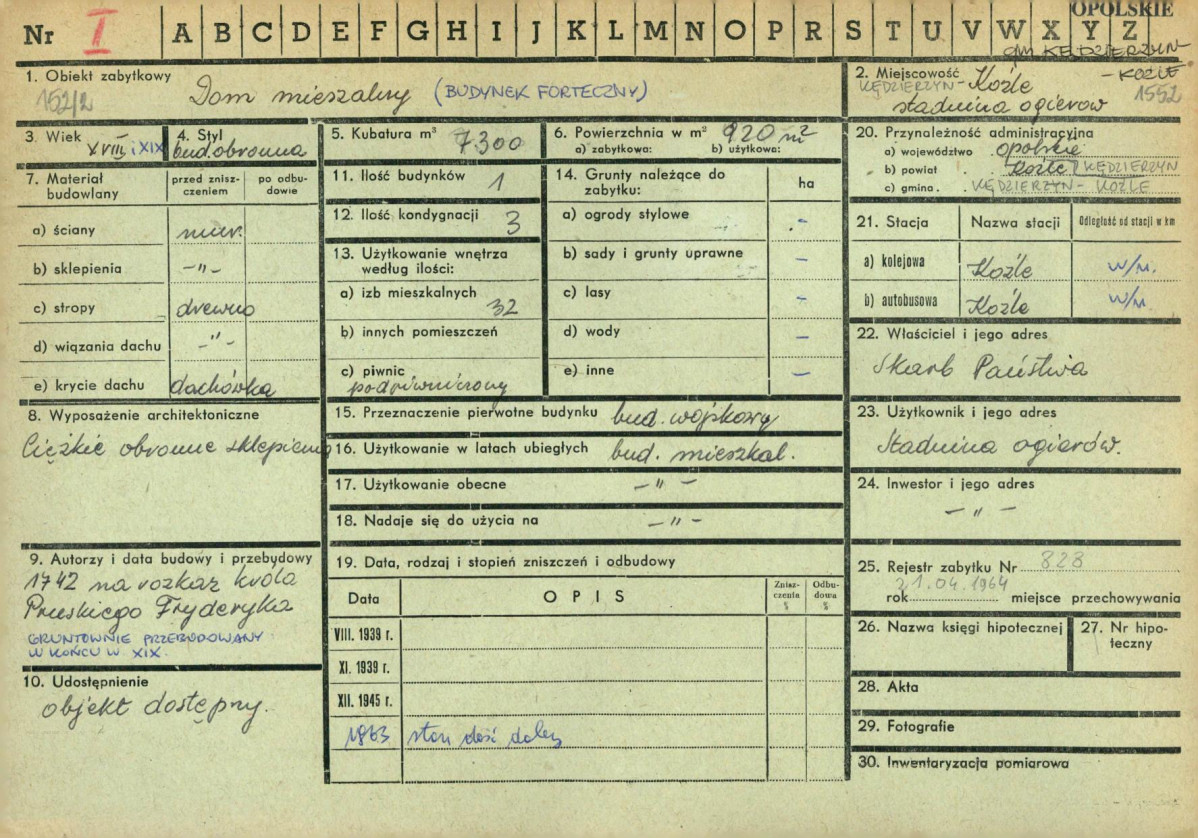 OPOLSKIE
Nr I A B C D E F G H I J K L M N O P R S T U V W X Y Z
gm. KĘDZIERZYN
- KOŹLE
1. Obiekt zabytkowy
152/2
Dom mieszalny (BUDYNEK FORTECZNY)
2. Miejscowość Koźle
KĘDZIERZYN-
1552
stadnina ogierow
3. Wiek XVIII i XIX
4. Styl
bud. obronna
5. Kubatura m³ 7300
6. Powierzchnia w m² 920 m²
a) zabytkowa: b) użytkowa:
7. Materiał budowlany
przed znisz-
czeniem
po odbu-
dowie
a) ściany mur.
b) sklepienia -"-
c) stropy drewno
d) wiązania dachu -"-
e) krycie dachu dachówka
8. Wyposażenie architektoniczne
Ciężkie obronne sklepienia
9. Autorzy i data budowy i przebydowy
1742 na rozkaz króla
Pruskiego Fryderyka
GRUNTOWNIE PRZEBUDOWANY
W KOŃCU W. XIX.
10. Udostępnienie
objekt dostępny.
11. Ilość budynków 1
12. Ilość kondygnacji 3
13. Użytkowanie wnętrza
według ilości:
a) izb mieszkalnych 32
b) innych pomieszczeń
c) piwnic
podpiwniczony
14. Grunty należące do
zabytku:
ha
a) ogrody stylowe -
b) sady i grunty uprawne -
c) lasy -
d) wody -
e) inne -
15. Przeznaczenie pierwotne budynku bud. wojskowy
16. Użytkowanie w latach ubiegłych bud. mieszkal.
17. Użytkowanie obecne -"-
18. Nadaje się do użycia na -"-
19. Data, rodzaj i stopień zniszczeń i odbudowy
Data OPIS
Znisz-
czenia
%
Odbu-
dowa
%
VIII. 1939 r.
XI. 1939 r.
XII. 1945 r.
1963 stan dość dobry
20. Przynależność administracyjna
a) województwo opolskie
b) powiat Koźle KĘDZIERZYN
c) gmina KĘDZIERZYN - KOŹLE
21. Stacja Nazwa stacji Odległość od stacji w km
a) kolejowa Koźle w/m.
b) autobusowa Koźle w/m.
22. Właściciel i jego adres
Skarb Państwa
23. Użytkownik i jego adres
Stadnina ogierów.
24. Inwestor i jego adres
-"-
25. Rejestr zabytku Nr 828
21.04.1964
rok miejsce przechowywania
26. Nazwa księgi hipotecznej
27. Nr hipo-
teczny
28. Akta
29. Fotografie
30. Inwentaryzacja pomiarowa